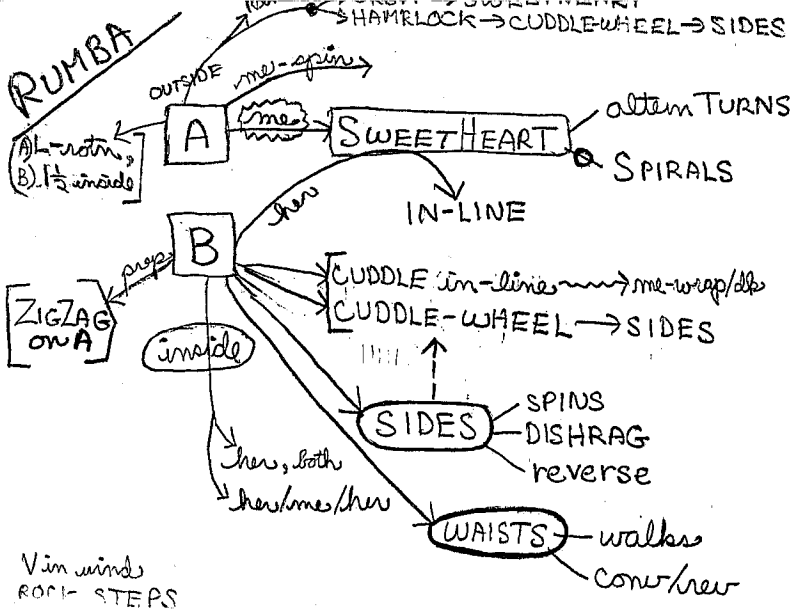 SWEETHEART
HAMRLOCK → CUDDLE-WHEEL → SIDES
RUMBA
OUTSIDE
me-spin
A) L-rotn,
B) 1½ inside
A
me
SWEETHEART
altern TURNS
SPIRALS
her
IN-LINE
B
prep
ZIGZAG
on A
CUDDLE in-line → me-wrap/dk
CUDDLE-WHEEL → SIDES
inside
SIDES
SPINS
DISHRAG
reverse
her, both
her/me/her
WAISTS
walks
conv/rev
V in wind
ROCK STEPS